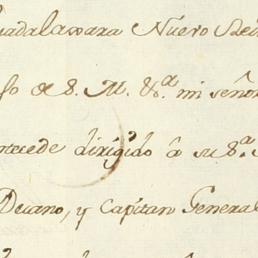 uadalaxara Nuevo Rei
so de S. M. &.ª mi señor
ntecede dirigido â su S.ª
Decano, y Capitan General